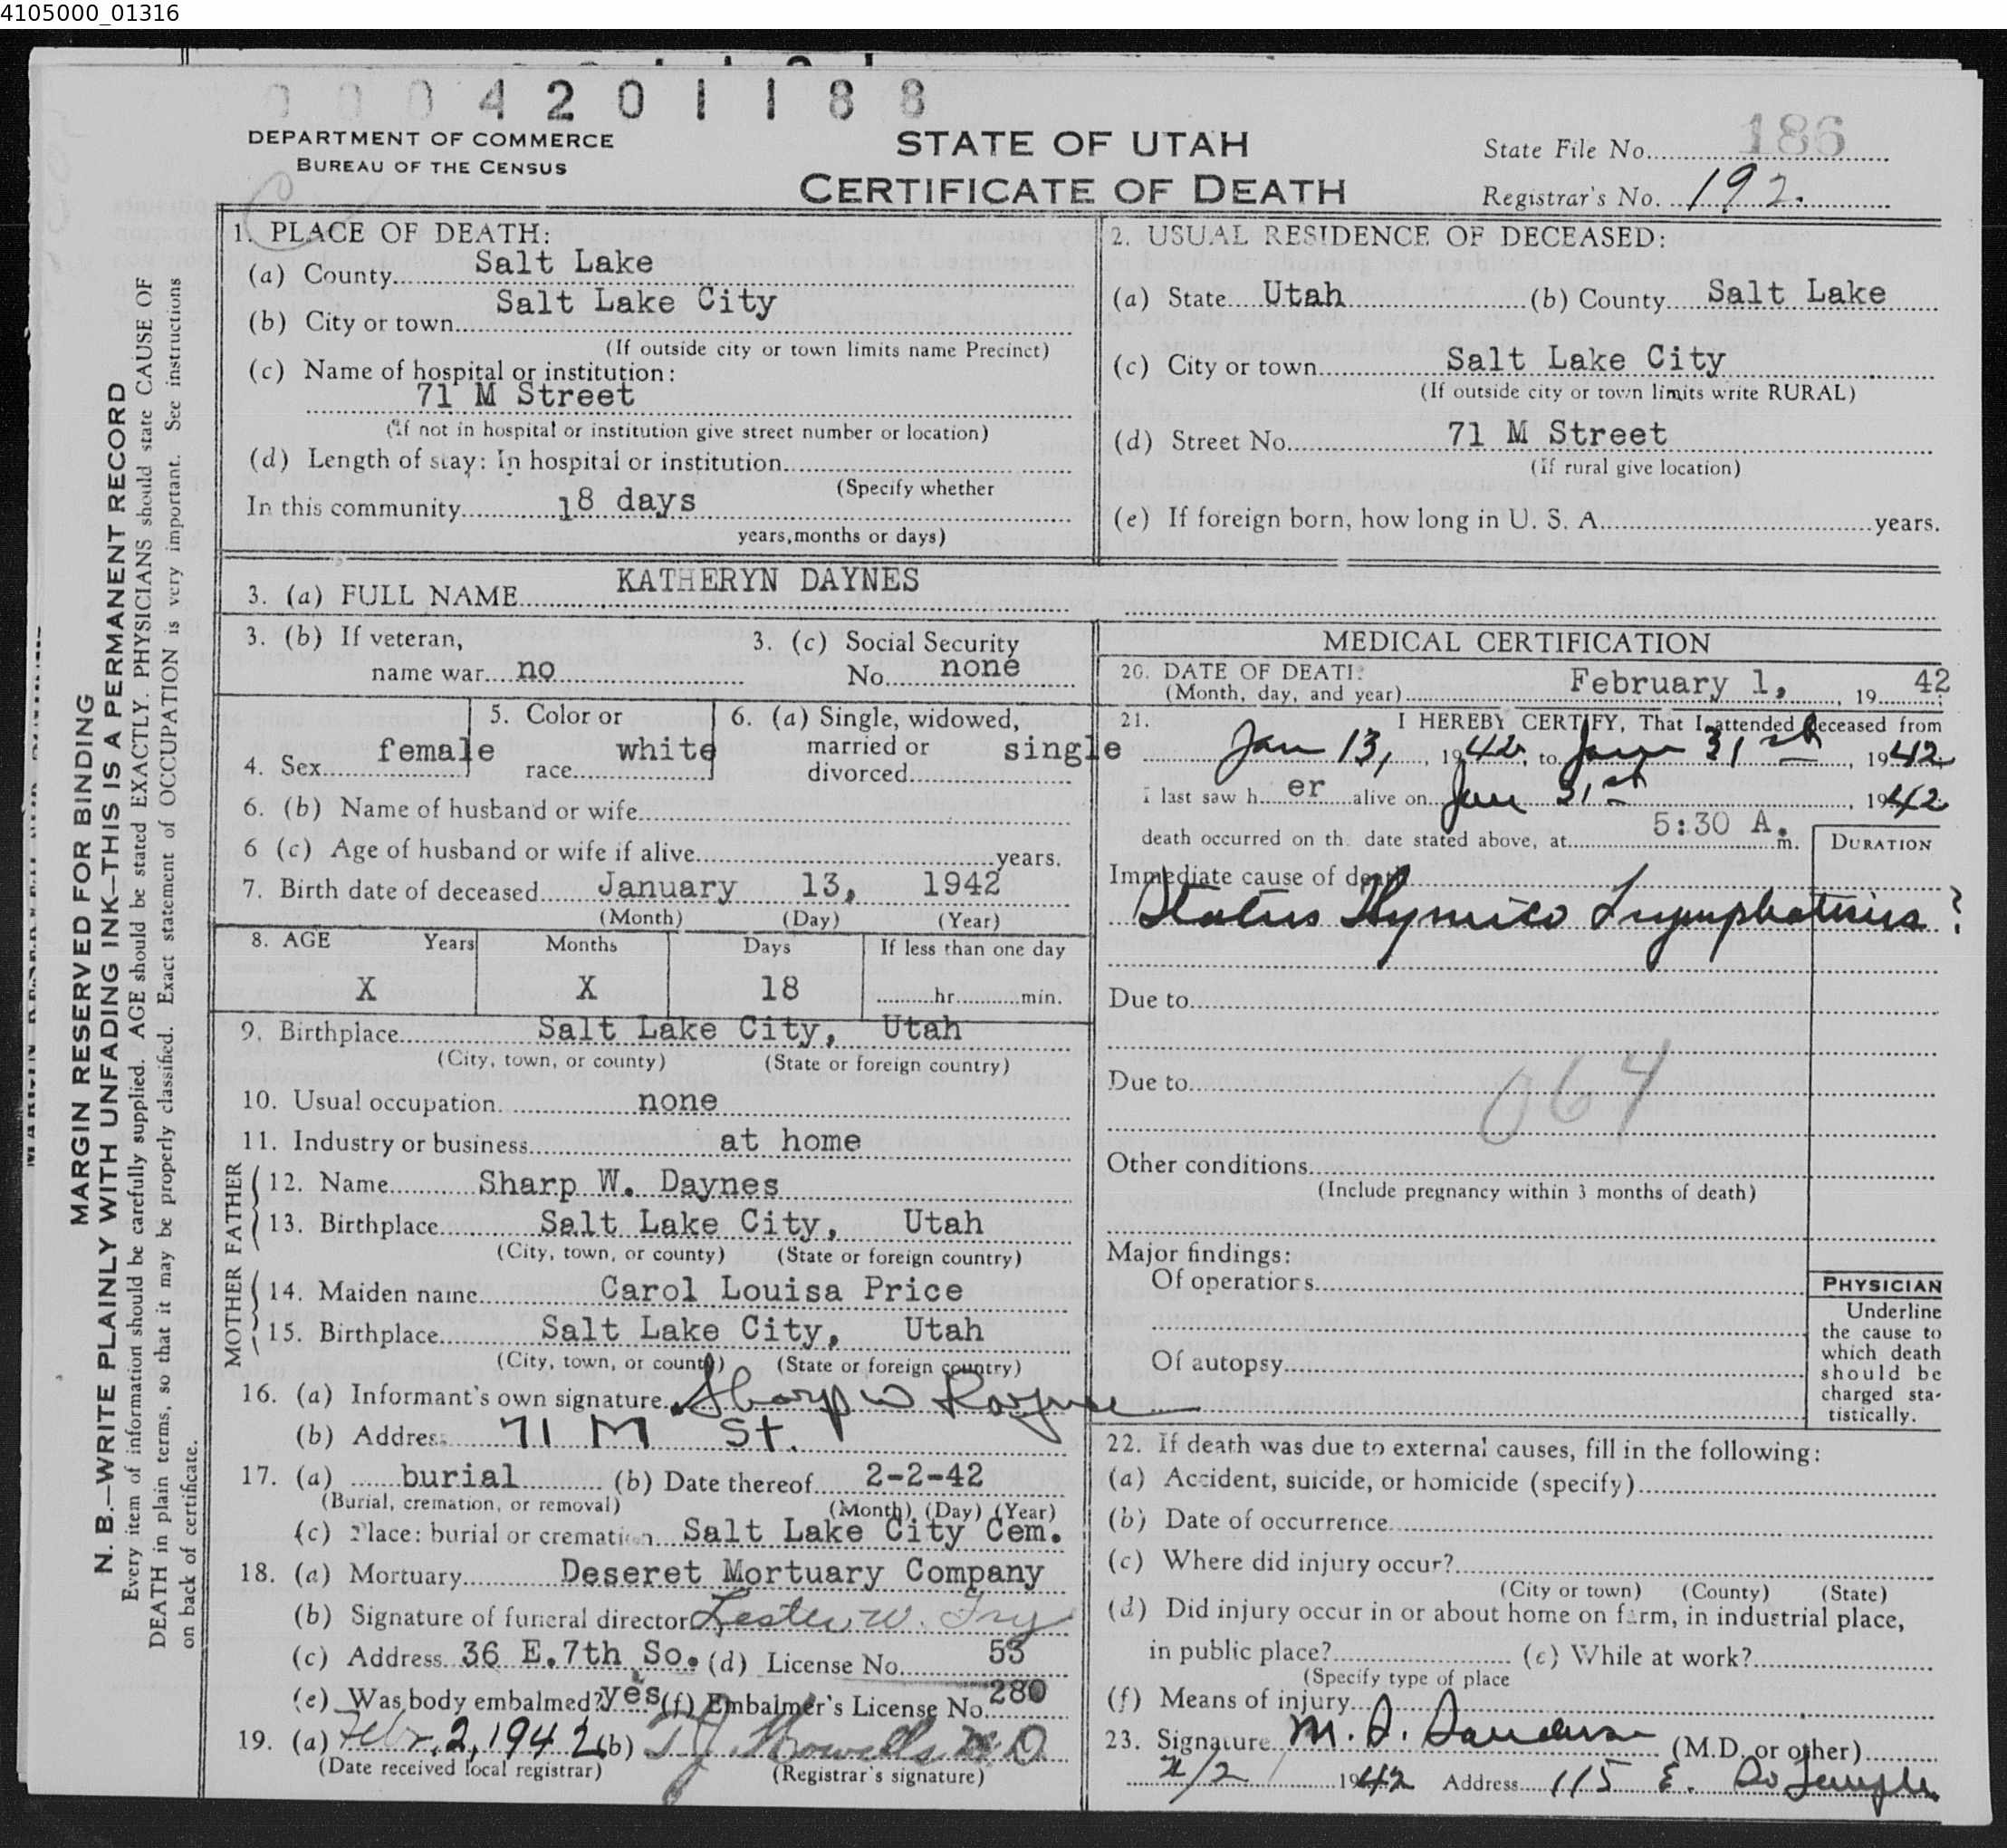 4105000_01316
0004201188
DEPARTMENT OF COMMERCE
BUREAU OF THE CENSUS
STATE OF UTAH
CERTIFICATE OF DEATH
State File No. 186
Registrar's No. 192.
MARGIN RESERVED FOR BINDING
N. B.—WRITE PLAINLY WITH UNFADING INK—THIS IS A PERMANENT RECORD
Every item of information should be carefully supplied. AGE should be stated EXACTLY. PHYSICIANS should state CAUSE OF
DEATH in plain terms, so that it may be properly classified. Exact statement of OCCUPATION is very important. See instructions
on back of certificate.
1. PLACE OF DEATH:
(a) County Salt Lake
(b) City or town Salt Lake City
(If outside city or town limits name Precinct)
(c) Name of hospital or institution:
71 M Street
(If not in hospital or institution give street number or location)
(d) Length of stay: In hospital or institution
(Specify whether
In this community 18 days
years, months or days)
2. USUAL RESIDENCE OF DECEASED:
(a) State Utah (b) County Salt Lake
(c) City or town Salt Lake City
(If outside city or town limits write RURAL)
(d) Street No. 71 M Street
(If rural give location)
(e) If foreign born, how long in U. S. A. years.
3. (a) FULL NAME KATHERYN DAYNES
3. (b) If veteran,
name war no
3. (c) Social Security
No. none
4. Sex female
5. Color or
race white
6. (a) Single, widowed,
married or
divorced single
6. (b) Name of husband or wife
6 (c) Age of husband or wife if alive years.
7. Birth date of deceased January 13, 1942
(Month) (Day) (Year)
8. AGE Years Months Days If less than one day
X X 18 hr. min.
9. Birthplace Salt Lake City, Utah
(City, town, or county) (State or foreign country)
10. Usual occupation none
11. Industry or business at home
FATHER
12. Name Sharp W. Daynes
13. Birthplace Salt Lake City, Utah
(City, town, or county) (State or foreign country)
MOTHER
14. Maiden name Carol Louisa Price
15. Birthplace Salt Lake City, Utah
(City, town, or county) (State or foreign country)
16. (a) Informant's own signature Sharp W Daynes
(b) Address 71 M St.
17. (a) burial (b) Date thereof 2-2-42
(Burial, cremation, or removal) (Month) (Day) (Year)
(c) Place: burial or cremation Salt Lake City Cem.
18. (a) Mortuary Deseret Mortuary Company
(b) Signature of funeral director Lester W. Fry
(c) Address 36 E. 7th So. (d) License No. 53
(e) Was body embalmed? yes (f) Embalmer's License No. 280
19. (a) Febr. 2, 1942 (b) T J Howells M D
(Date received local registrar) (Registrar's signature)
MEDICAL CERTIFICATION
20. DATE OF DEATH
(Month, day, and year) February 1, 1942
21. I HEREBY CERTIFY, That I attended deceased from
Jan 13, 1942, to Jan 31st, 1942
I last saw her alive on Jan 31st, 1942
death occurred on the date stated above, at 5:30 A. m.
DURATION
Immediate cause of death
Status Thymico Lymphaticus ?
Due to
Due to
064
Other conditions
(Include pregnancy within 3 months of death)
Major findings:
Of operations
Of autopsy
PHYSICIAN
Underline
the cause to
which death
should be
charged sta-
tistically.
22. If death was due to external causes, fill in the following:
(a) Accident, suicide, or homicide (specify)
(b) Date of occurrence
(c) Where did injury occur?
(City or town) (County) (State)
(d) Did injury occur in or about home on farm, in industrial place,
in public place? (e) While at work?
(Specify type of place
(f) Means of injury
23. Signature M. (M.D. or other)
2/2 1942 Address 115 E. So Temple